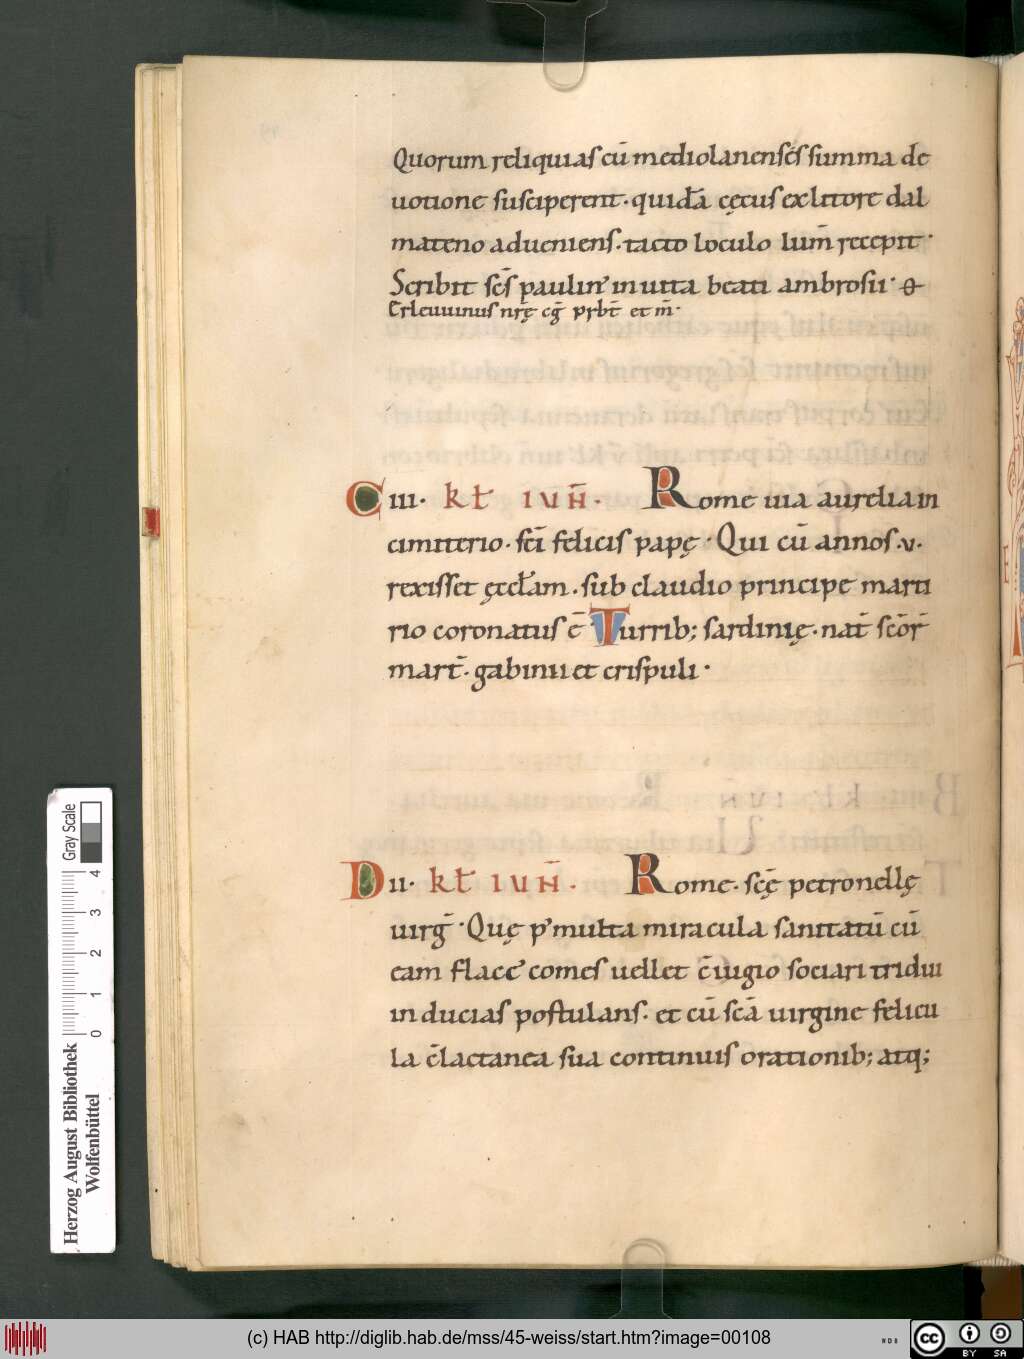 Quorum reliquias cū mediolanenses summa de
uotione susciperent. quidā cęcus ex littore dal
mateno adueniens. tacto loculo lum̄ recepit.
Scribit scs̄ paulin' in uita beati ambrosii. &
Erleuuinus nrę̄ cḡ prbt̄ et m̄.
C iii. kł iuǹ. Rome uia aurelia in
cimiterio. sc̄i felicis papę. Qui cū annos .v.
rexisset ęccłam. sub claudio principe marti
rio coronatus ē Turrib; sardinię. nat̄ sc̄or̄
mart̄. gabinii et crispuli.
D ii. kł iuǹ. Rome. sc̄ę petronellę
uirḡ. Quę p' multa miracula sanitatū cū
eam flacc' comes uellet c̄iugio sociari tridui
inducias postulans. et cū sc̄a uirgine felicu
la c̄lactanea sua continuis orationib; atq;
Herzog August Bibliothek
Wolfenbüttel
0 1 2 3 4
Gray Scale
(c) HAB http://diglib.hab.de/mss/45-weiss/start.htm?image=00108
cc BY SA